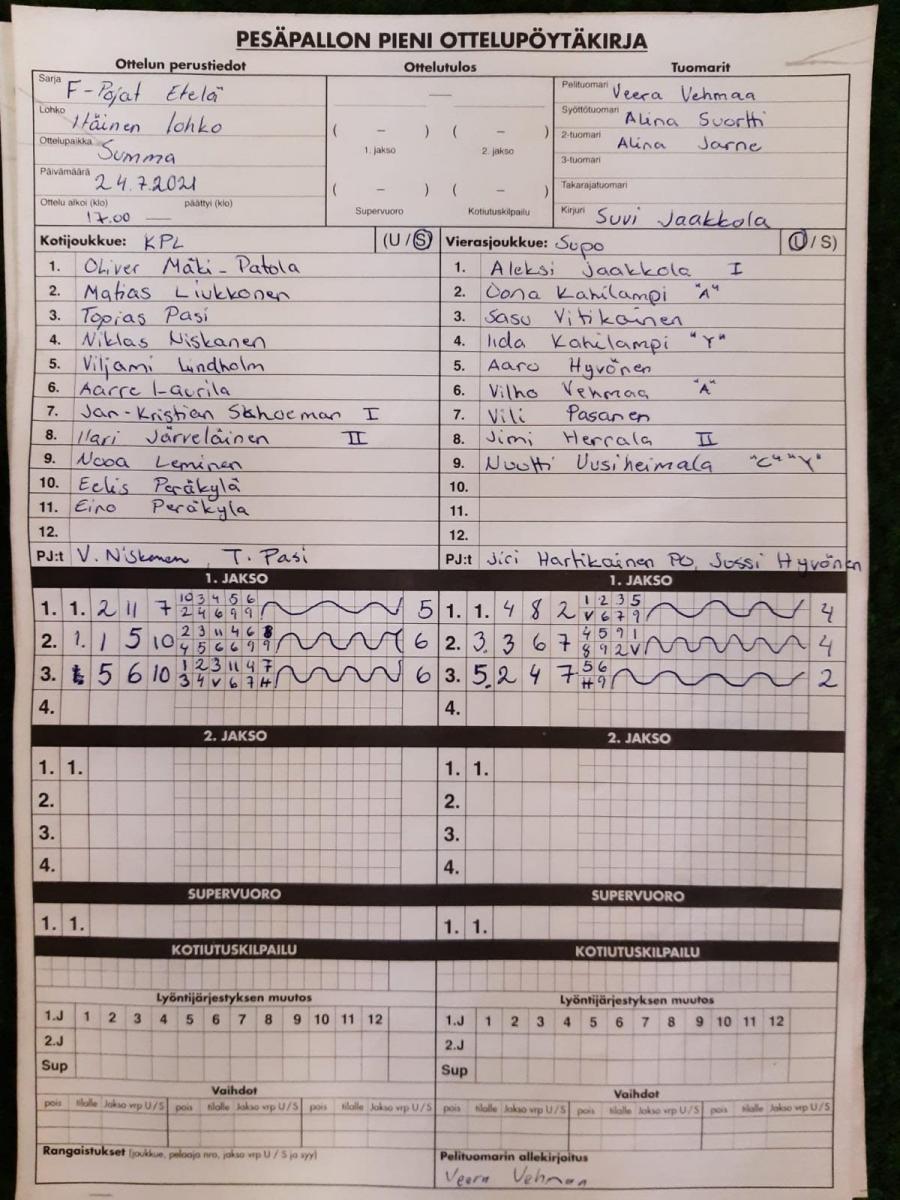 PESÄPALLON PIENI OTTELUPÖYTÄKIRJA
Ottelun perustiedot
Sarja F-Pojat Etelä
Lohko Itäinen lohko
Ottelupaikka Summa
Päivämäärä 24.7.2021
Ottelu alkoi (klo) päättyi (klo)
17.00 —
Ottelutulos
—
( – ) ( – )
1. jakso 2. jakso
( – ) ( – )
Supervuoro Kotiutuskilpailu
Tuomarit
Pelituomari Veera Vehmaa
Syöttötuomari Alina Suortti
2-tuomari Alina Jarne
3-tuomari
Takarajatuomari
Kirjuri Suvi Jaakkola
Kotijoukkue: KPL (U / S)
1. Oliver Mäki-Patola
2. Matias Liukkonen
3. Topias Pasi
4. Niklas Niskanen
5. Viljami Lindholm
6. Aarre Laurila
7. Jan-Kristian Schoeman I
8. Ilari Järveläinen II
9. Nooa Leminen
10. Eelis Peräkylä
11. Eino Peräkyla
12.
PJ:t V. Niskanen, T. Pasi
Vierasjoukkue: SuPo (U / S)
1. Aleksi Jaakkola I
2. Oona Kahilampi "A"
3. Sasu Vitikainen
4. Iida Kahilampi "Y"
5. Aaro Hyvönen
6. Vilho Vehmaa "A"
7. Vili Pasanen
8. Jimi Herrala II
9. Nuutti Uusiheimala "C" "Y"
10.
11.
12.
PJ:t Jiri Hartikainen PO, Jussi Hyvönen
1. JAKSO
1. 1. 2 11 7 10 3 4 5 6 5
2 4 6 9 9
2. 1. 1 5 10 2 3 11 4 6 8 6
4 5 6 6 9 9
3. 5 6 10 1 2 3 11 4 7 6
3 4 V 6 7 H
4.
1. JAKSO
1. 1. 4 8 2 1 2 3 5 4
V 6 7 9
2. 3. 3 6 7 4 5 9 1 4
8 9 2 V
3. 5. 2 4 7 5 6 2
H 9
4.
2. JAKSO
1. 1.
2.
3.
4.
2. JAKSO
1. 1.
2.
3.
4.
SUPERVUORO
1. 1.
SUPERVUORO
1. 1.
KOTIUTUSKILPAILU
KOTIUTUSKILPAILU
Lyöntijärjestyksen muutos
1.J 1 2 3 4 5 6 7 8 9 10 11 12
2.J
Sup
Lyöntijärjestyksen muutos
1.J 1 2 3 4 5 6 7 8 9 10 11 12
2.J
Sup
Vaihdot
pois tilalle Jakso vrp U / S pois tilalle Jakso vrp U / S pois tilalle Jakso vrp U / S
Vaihdot
pois tilalle Jakso vrp U / S pois tilalle Jakso vrp U / S pois tilalle Jakso vrp U / S
Rangaistukset (joukkue, pelaaja nro, jakso vrp U / S ja syy)
Pelituomarin allekirjoitus
Veera Vehmaa